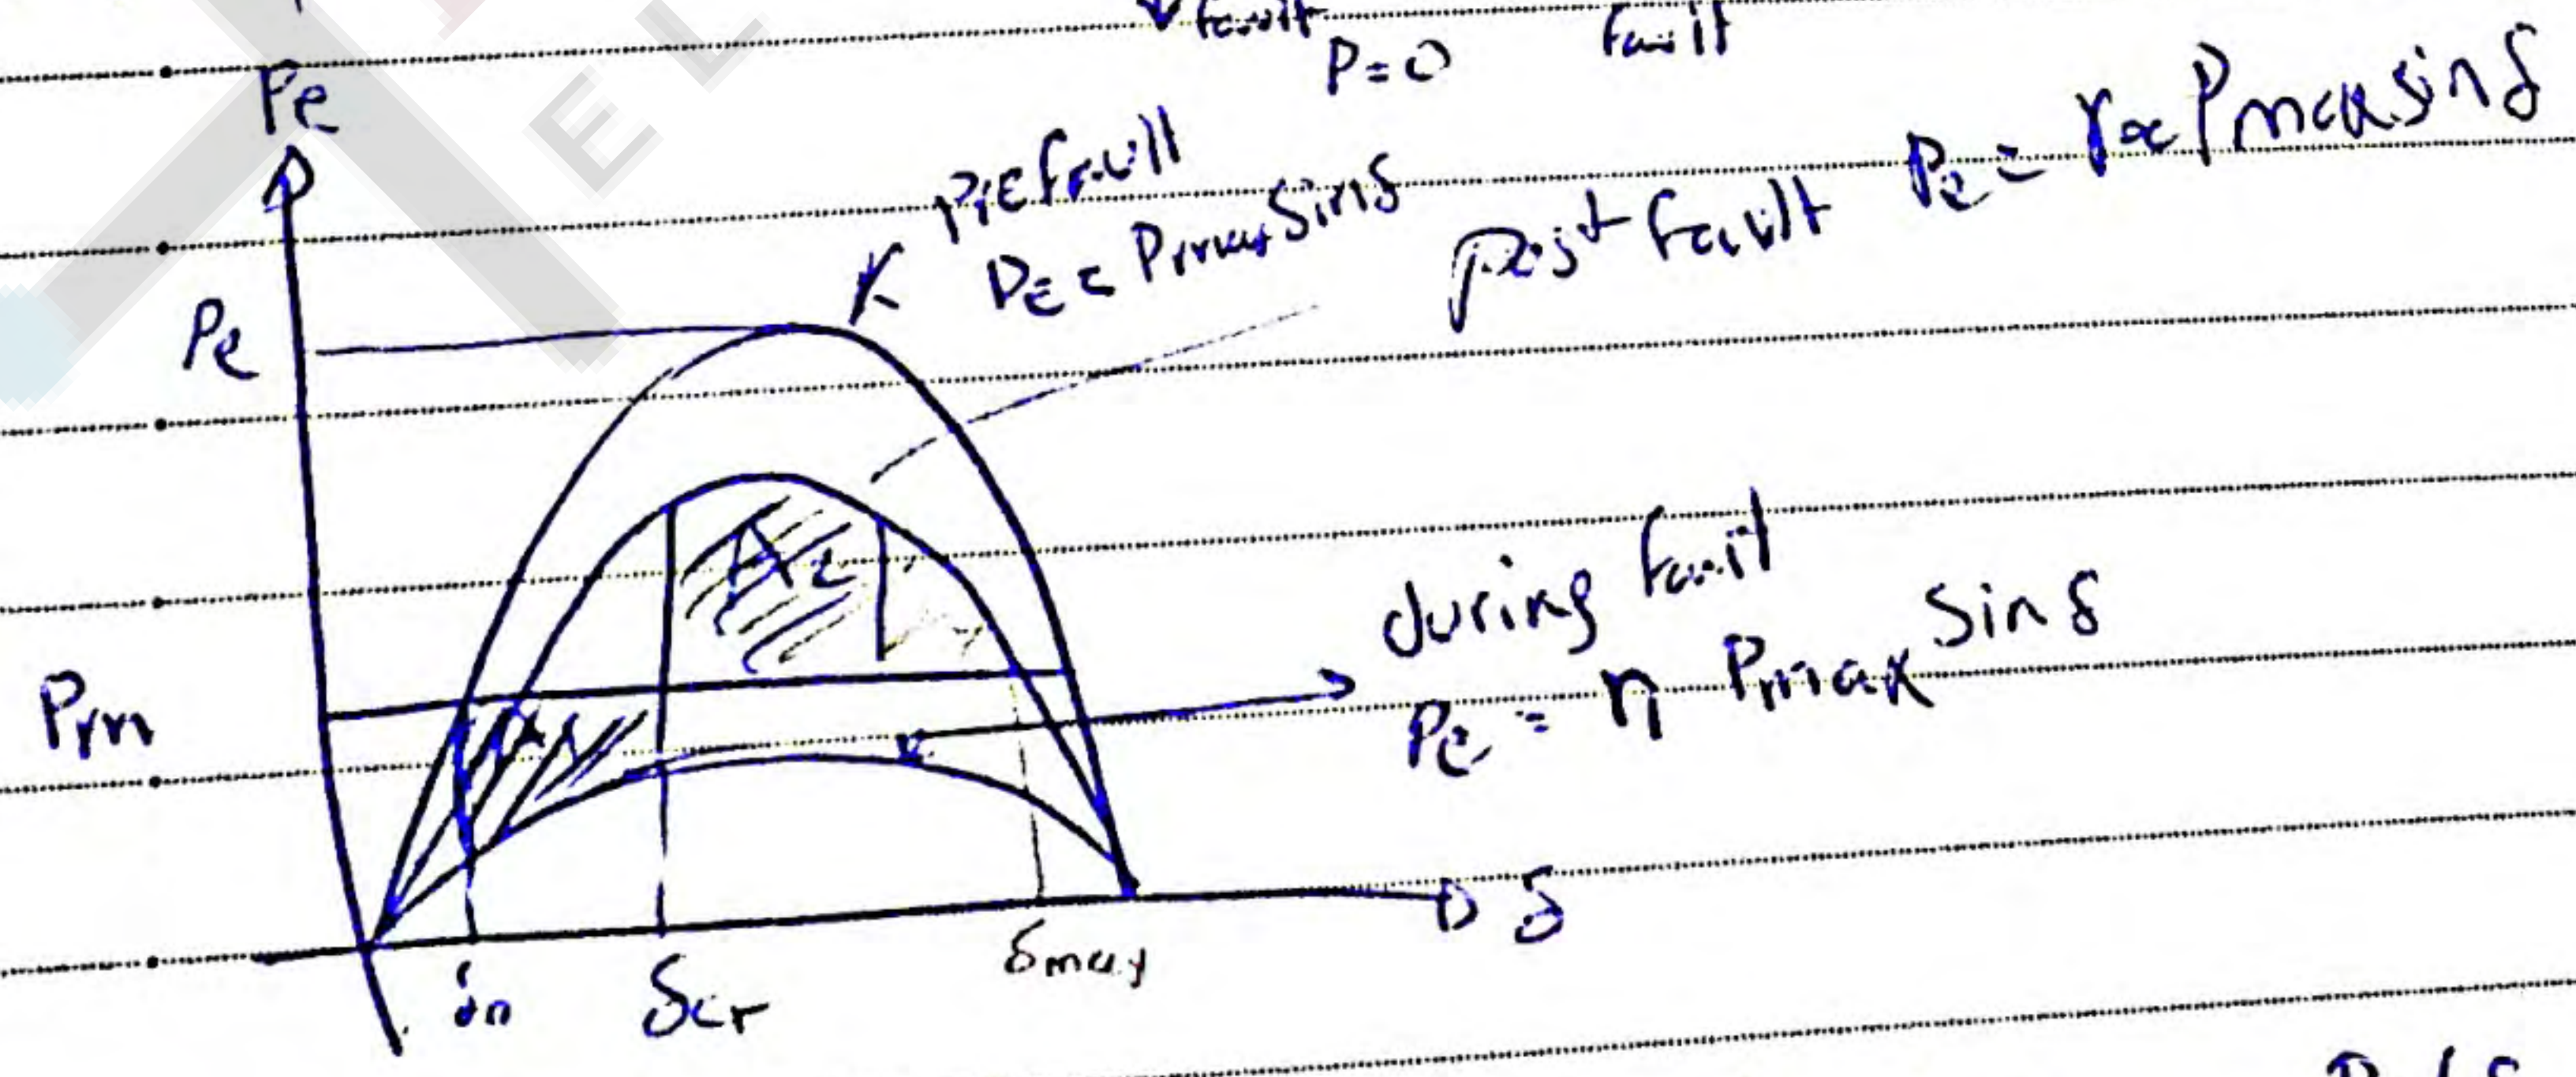 fault
P=0
fault
Pe
prefault
Pe = Pmax Sin δ
post fault Pe = r Pmax sin δ
Pe
A2
during fault
Pe = η Pmax Sin δ
Pm
A1
δ
δo
δcr
δmax
EL